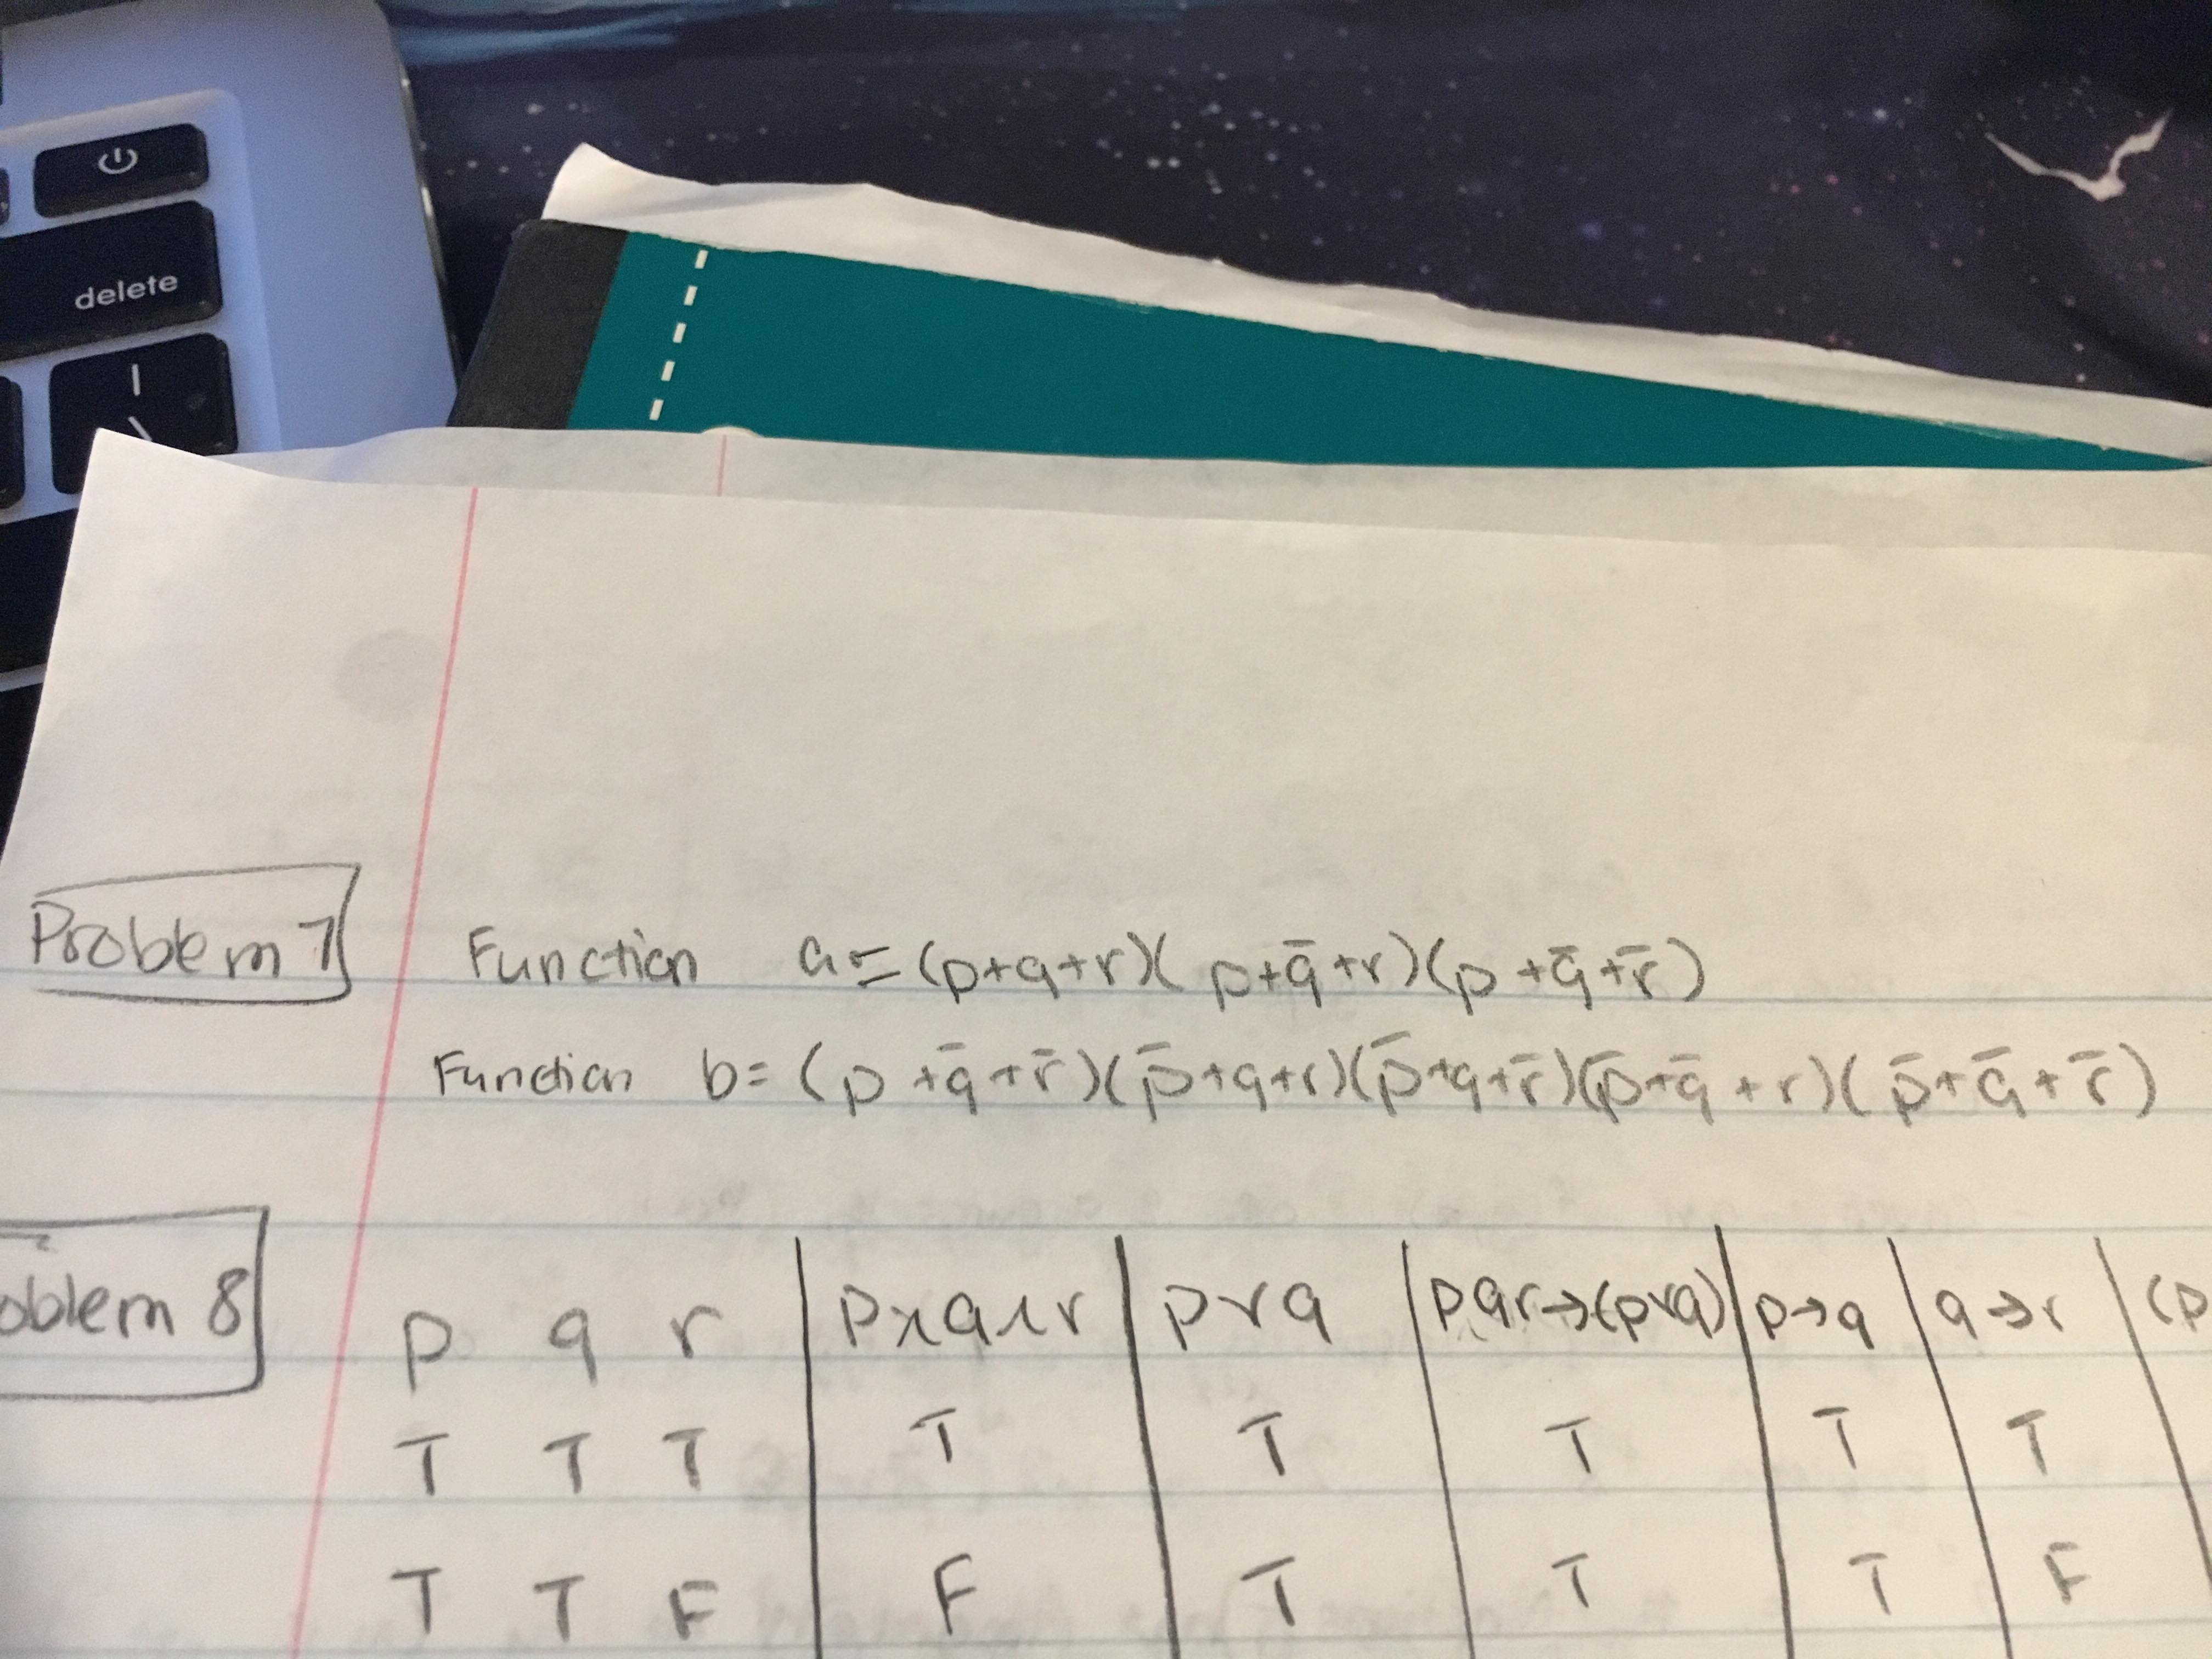 delete
|
\
Problem 7
Function a = (p+q+r)(p+q̄+r)(p+q̄+r̄)
Function b = (p+q̄+r̄)(p̄+q+r)(p̄+q+r̄)(p̄+q̄+r)(p̄+q̄+r̄)
oblem 8
p q r p∧q∧r p∨q pqr→(p∨q) p→q q→r (p
T T T T T T T T
T T F F T T T F